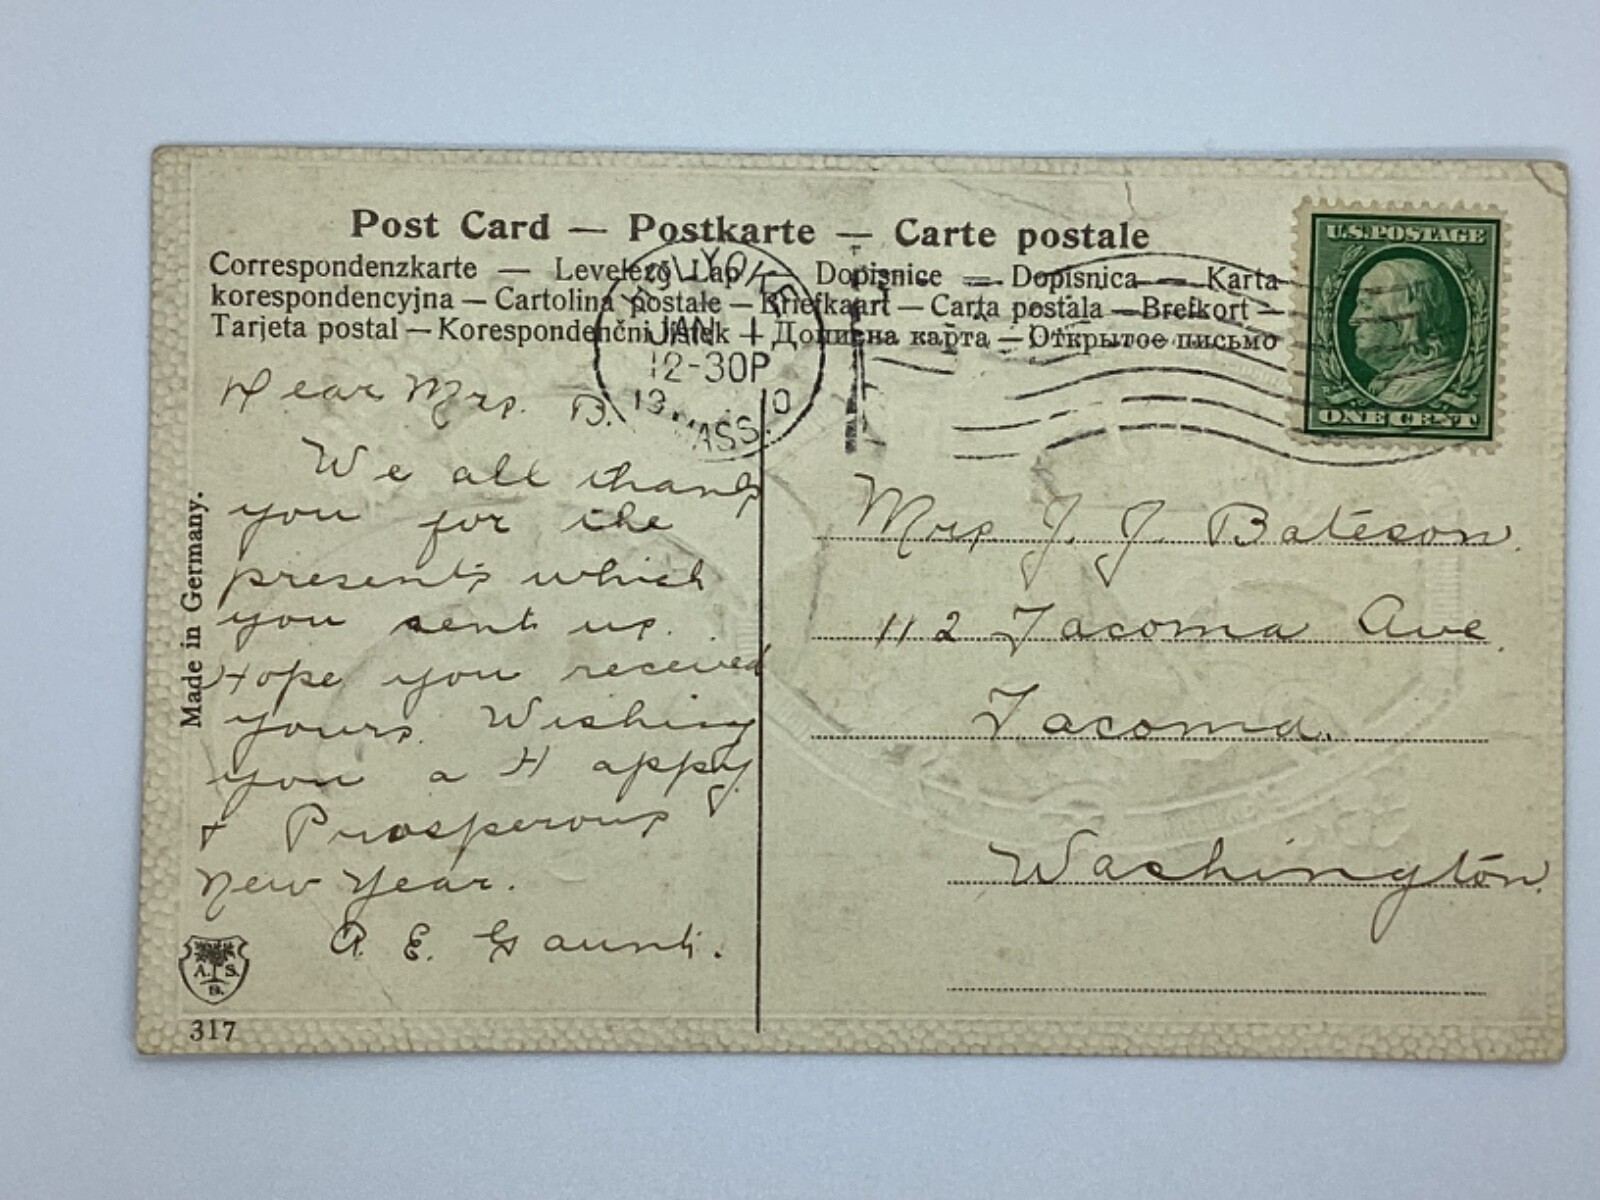 Post Card — Postkarte — Carte postale
Correspondenzkarte — Levelező Lap — Dopisnice — Dopisnica — Karta
korespondencyjna — Cartolina postale — Briefkaart — Carta postala — Brefkort —
Tarjeta postal — Korespondenčni listek — Дописна карта — Открытое письмо
HOLYOKE
JAN 1
12-30P
1910
MASS.
U.S. POSTAGE
ONE CENT
Dear Mrs. B.
We all thank
you for the
presents which
you sent us.
Hope you received
yours. Wishing
you a Happy
+ Prosperous
New Year.
A. E. Gaunt.
Mrs J. J. Bateson.
112 Tacoma Ave.
Tacoma.
Washington.
Made in Germany.
A. S.
B.
317